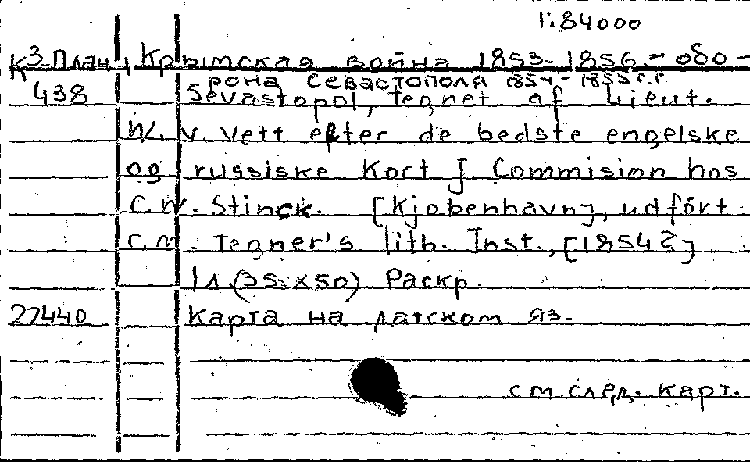 1:84000
К3.План Крымская война 1853-1856 - обо-
К рона Севастополя 1854-1855 г.г.
438 Sevastopol, Tegnet af Lieut.
W. v. Vett efter de bedste engelske
og russiske Kort J Commision hos
C.W. Stinck. [Kjobenhavn], udfört
C.M. Tegner's lith. Inst., [1854?]
1л.(35x50) Раскр.
27440 Карта на датском яз.
см след. карт.